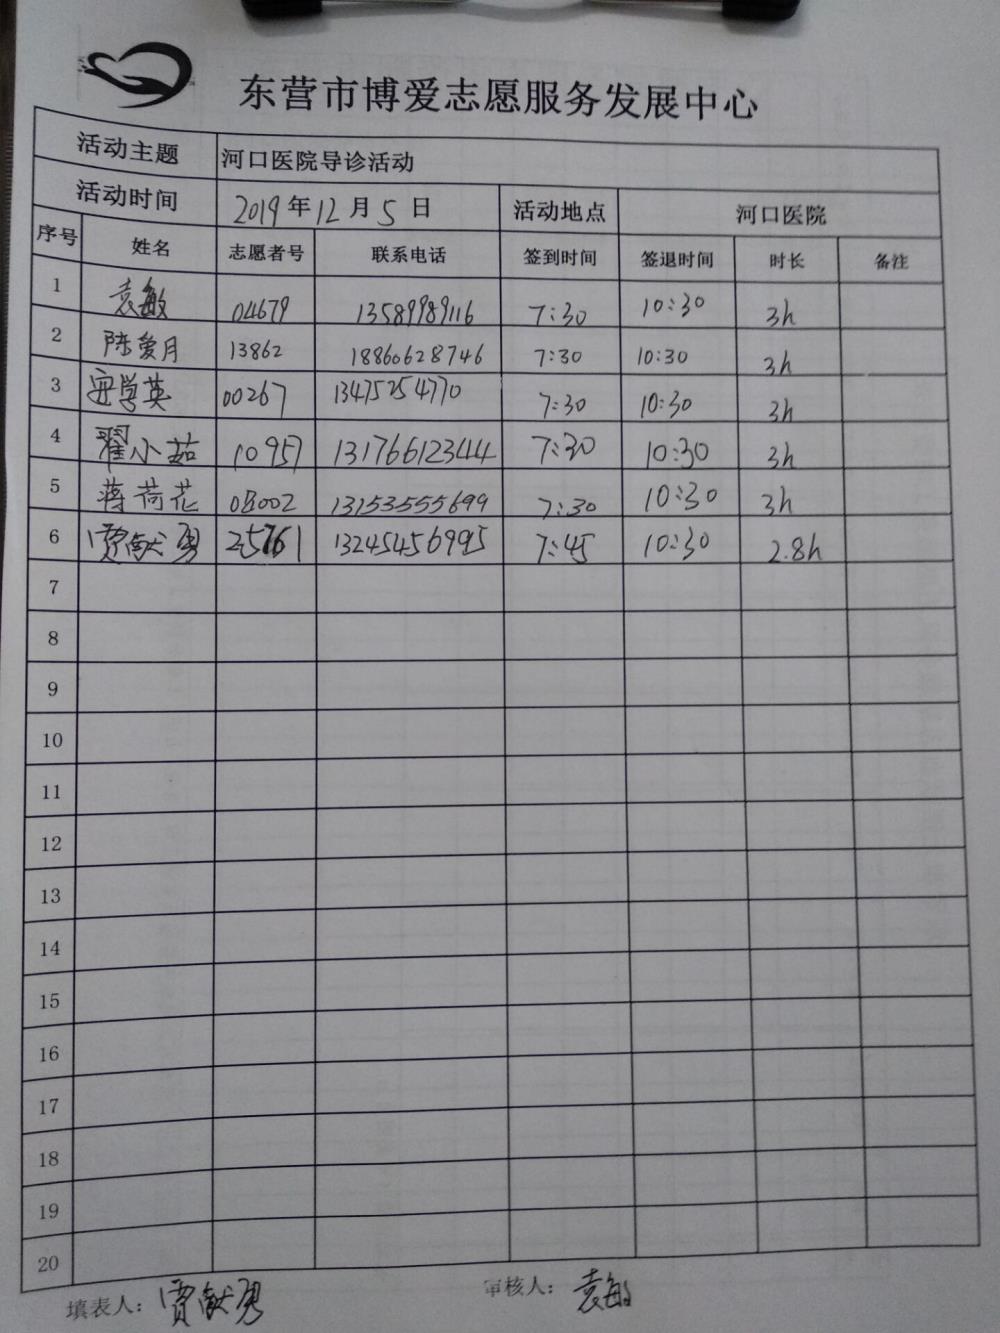 东营市博爱志愿服务发展中心
活动主题 河口医院导诊活动
活动时间 2019年12月5日 活动地点 河口医院
序号 姓名 志愿者号 联系电话 签到时间 签退时间 时长 备注
1 袁敏 04679 13589989116 7:30 10:30 3h
2 陈爱月 13862 18860628746 7:30 10:30 3h
3 安学英 00267 13475254770 7:30 10:30 3h
4 翟小茹 10957 13176612344 7:30 10:30 3h
5 蒋荷花 13153555699 7:30 10:30 3h
6 贾献勇 25761 13245456995 7:45 10:30 2.8h
7
8
9
10
11
12
13
14
15
16
17
18
19
20
填表人：贾献勇 审核人：袁敏